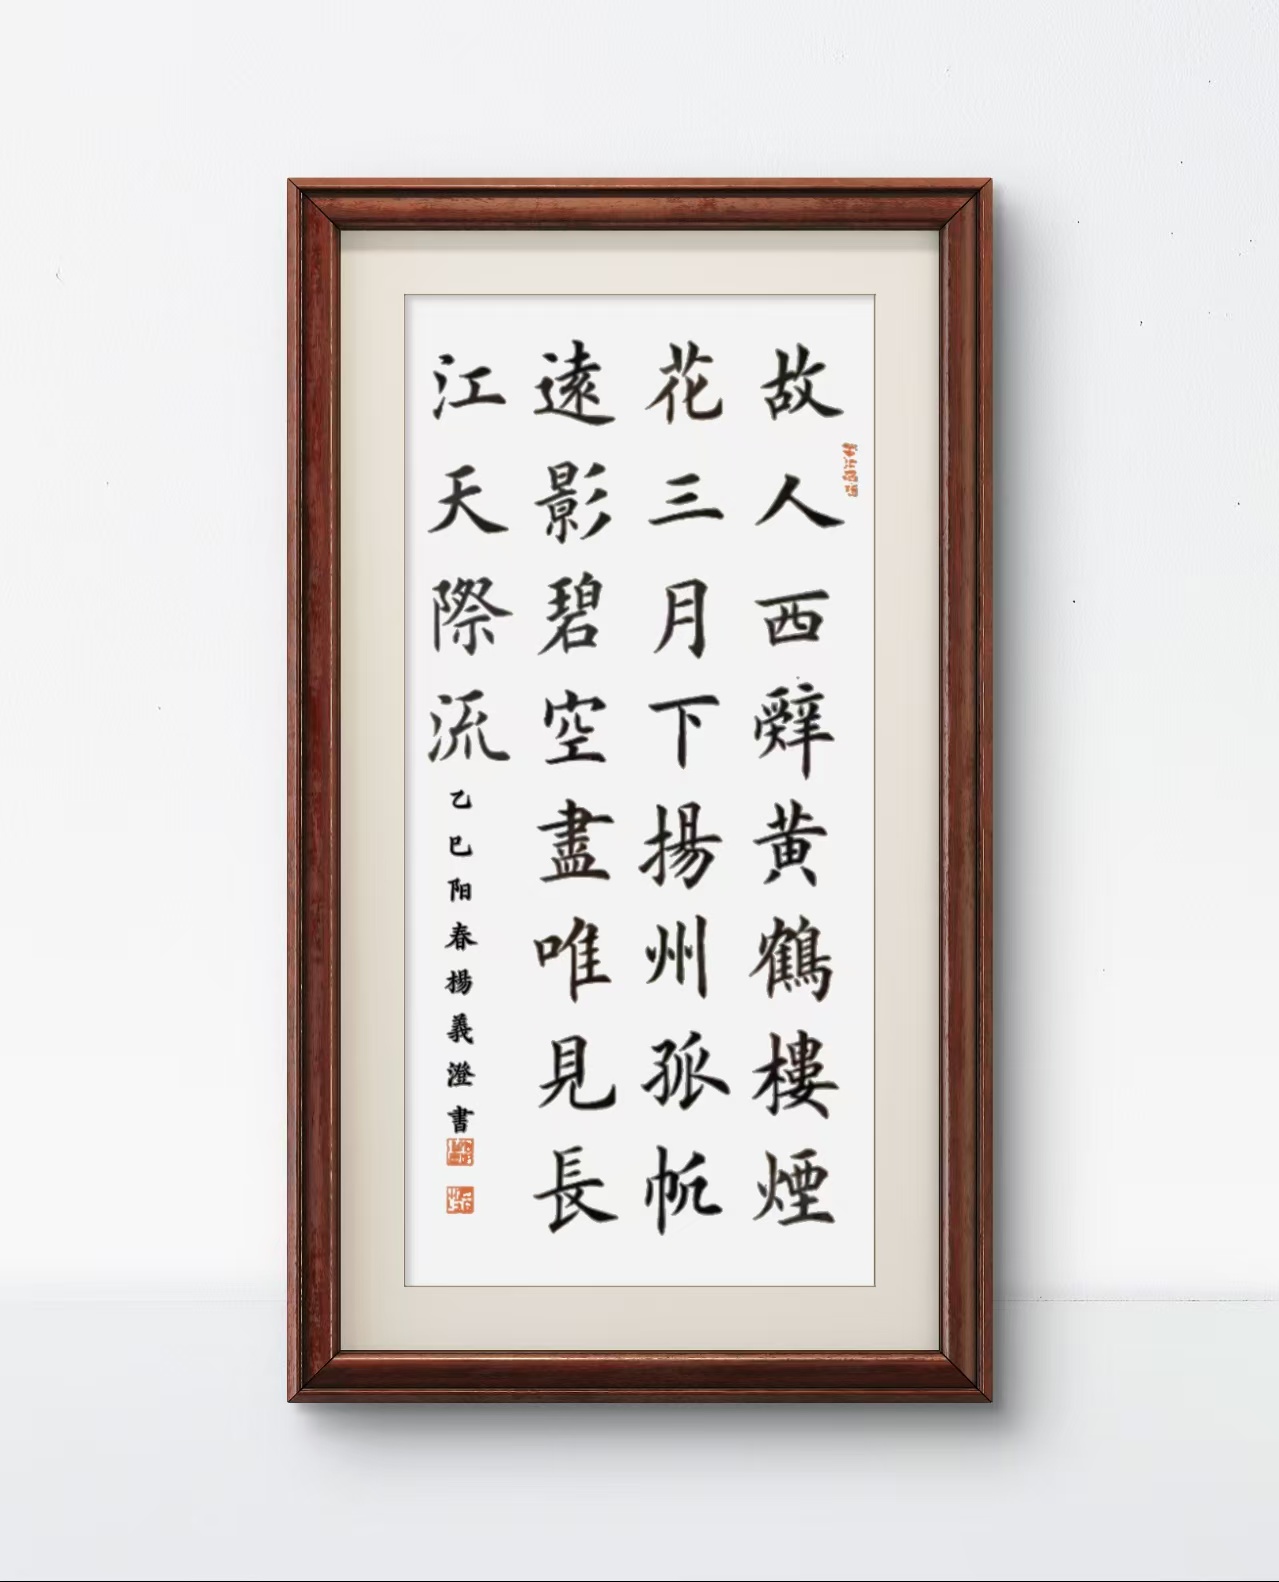 故人西辤黄鶴樓煙
花三月下揚州孤帆
遠影碧空盡唯見長
江天際流
乙巳阳春揚義澄書